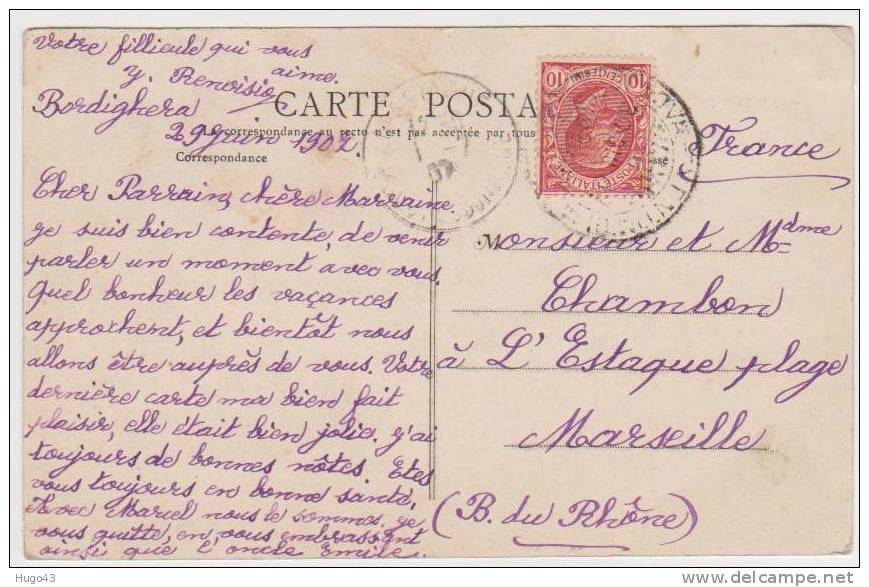 Votre fillieule qui vous
aime.
Y. Renoisio
Bordighera
29 juin 1907.
CARTE POSTA
La correspondance au recto n'est pas acceptée par tous
Correspondance
Cher Parrain, chère Marraine
je suis bien contente, de venir
parler un moment avec vous.
Quel bonheur les vaçances
approchent, et bientôt nous
allons être auprès de vous. Votre
dernière carte ma bien fait
plaisir, elle était bien jolie. j'ai
toujours de bonnes nôtes. Etes
vous toujours en bonne santé,
Avec Marcel nous le sommes. je
vous quitte, en vous embrassant
ainsi que l'oncle Emile.
10
CENTESIMI
10
POSTE ITALIANE
France
Monsieur et Mdme
Chambon
à L'Estaque plage
Marseille
(B. du Rhône)
Hugo43